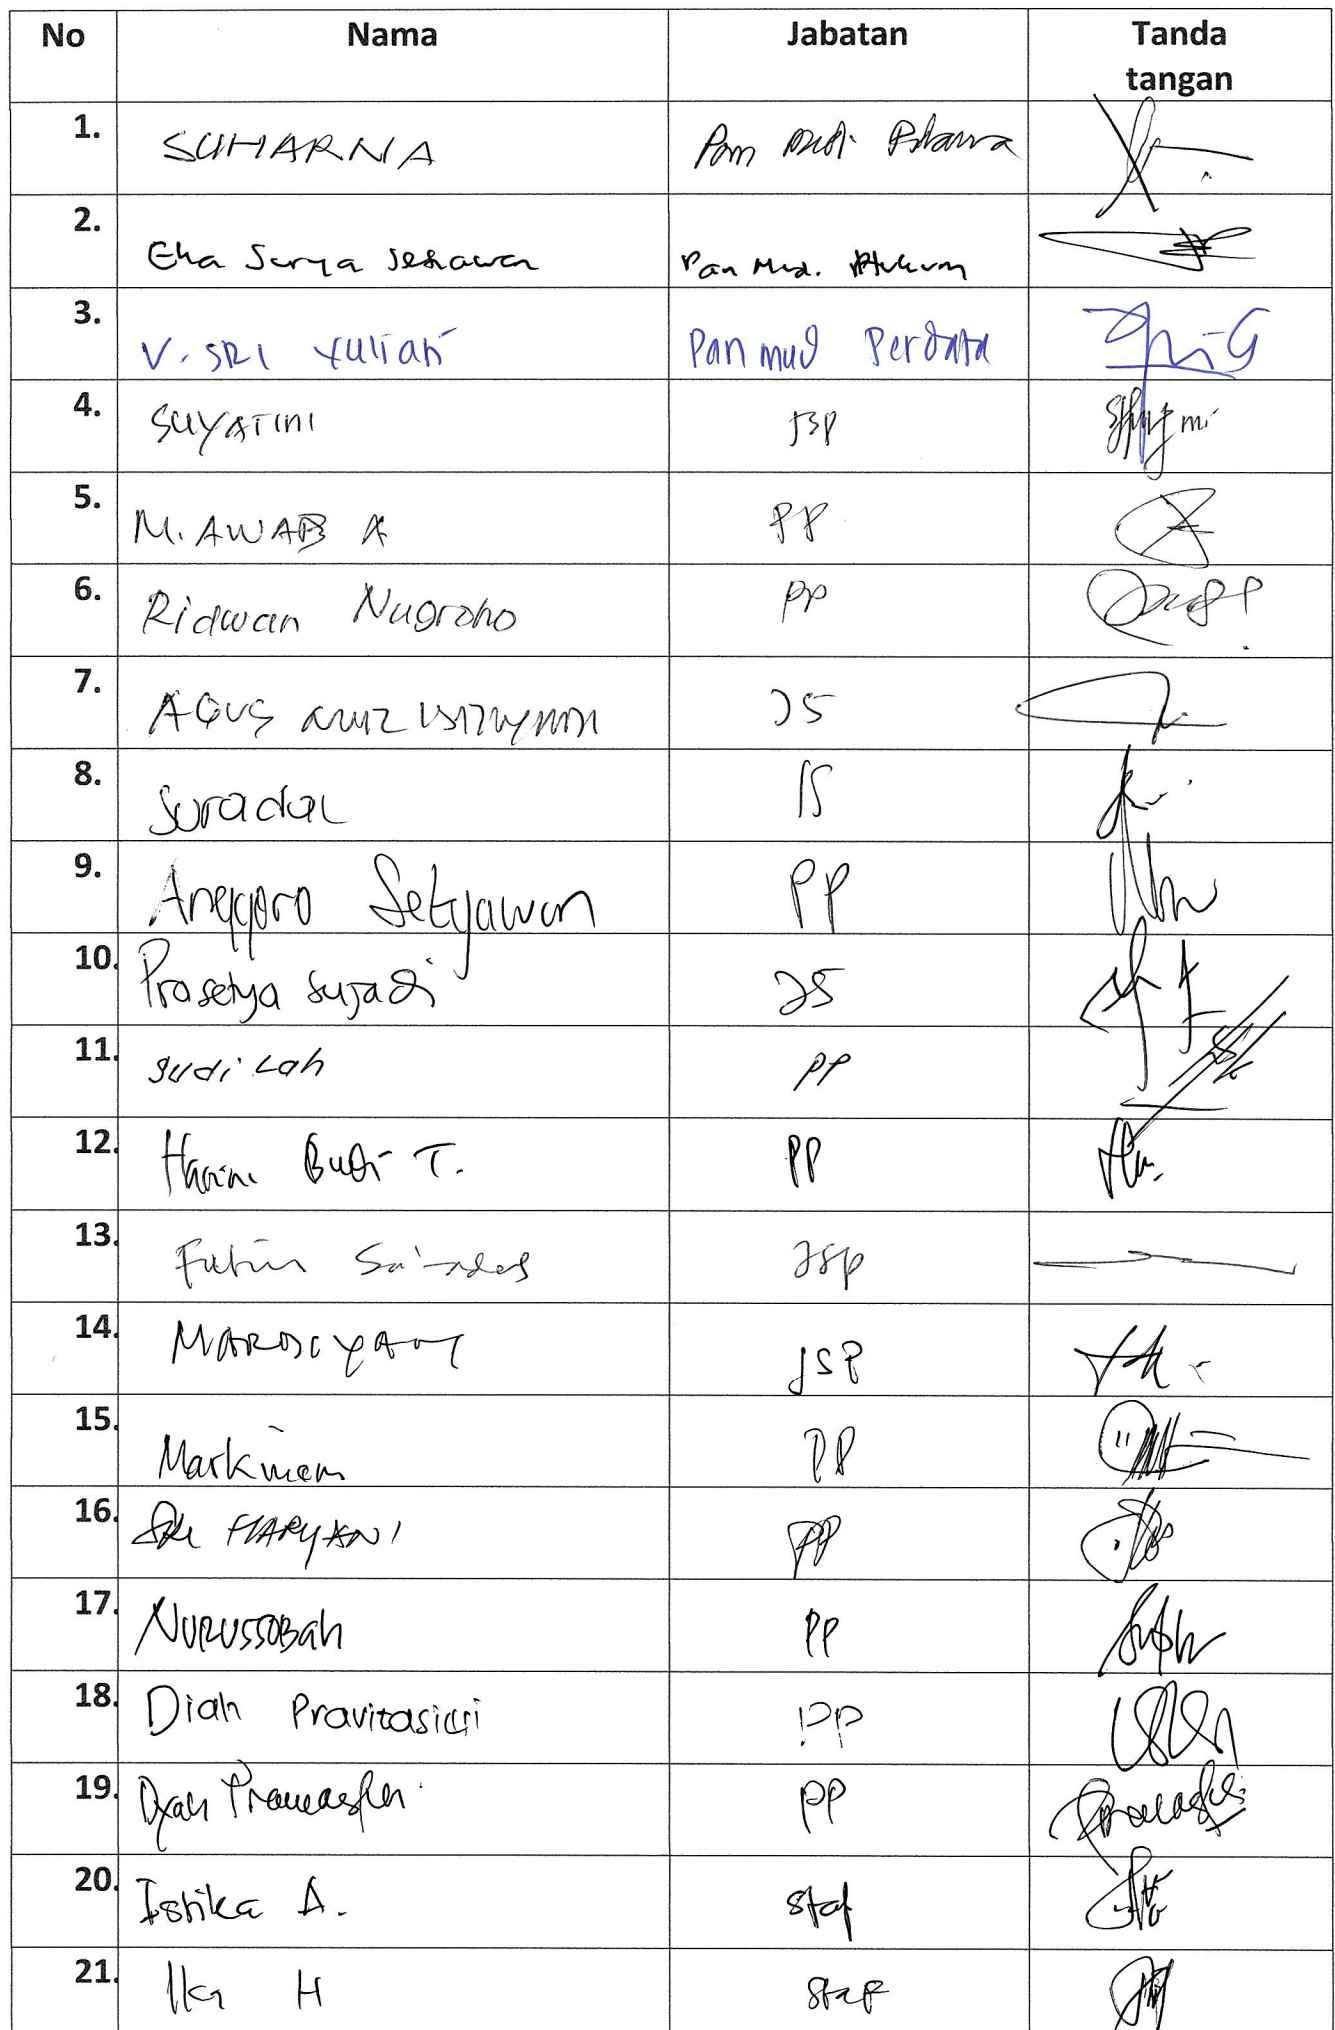 No Nama Jabatan Tanda
tangan
1. SUHARNA Pan Mud. Pidana
2. Eka Surya Setiawan Pan Mud. Hukum
3. V. SRI Yuliati Pan mud Perdata
4. SUYATINI JSP
5. M. AWAB A PP
6. Ridwan Nugroho PP
7. AGUS JS
8. Suradal JS
9. Anggoro Setyawan PP
10. Prasetya Sujadi JS
11. Sudilah PP
12. Harini Budi T. PP
13. JSP
14. MARDIYANT JSP
15. Markinem PP
16. SRI HARYANI PP
17. NURUSSOBAH PP
18. Diah Pravitasari PP
19. Dyah PP
20. Istika A. Staf
21. Ika H Staf